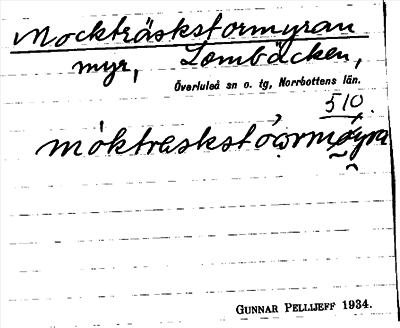 Mockträskstormyran
myr, Lombäcken,
Överluleå sn o. tg, Norrbottens län.
510.
GUNNAR PELLIJEFF 1934.